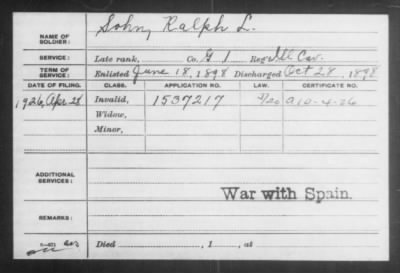 NAME OF SOLDIER: Sohn, Ralph L.
SERVICE: Late rank, Co. G 1 Reg't Ill Cav.
TERM OF SERVICE: Enlisted June 18, 1898 Discharged Oct 28, 1898
DATE OF FILING. CLASS. APPLICATION NO. LAW. CERTIFICATE NO.
1926, Apr 28 Invalid, 1537217 A 10-4-26
Widow,
Minor,
ADDITIONAL SERVICES:
War with Spain.
REMARKS:
Died , 1 , at